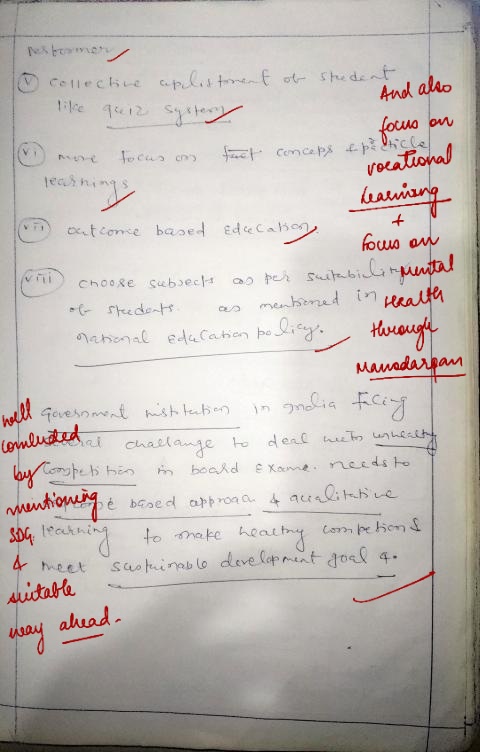 performer
(v) collective uplistment of student
like quiz system
(vi) more focus on fact concept & practicle
learnings
(vii) outcome based education.
(viii) choose subjects as per suitability
of students. as mentioned in
national Education policy.
And also
focus on
vocational
Learning
+
Focus on
Mental
Health
through
Manodarpan
Government institution in India facing
challange to deal with unhealthy
competition in board exams. needs to
based approach & qualitative
learning to make healthy competions
meet sustainable development goal 4.
well
concluded
by
mentioning
SDG.
&
suitable
way ahead.